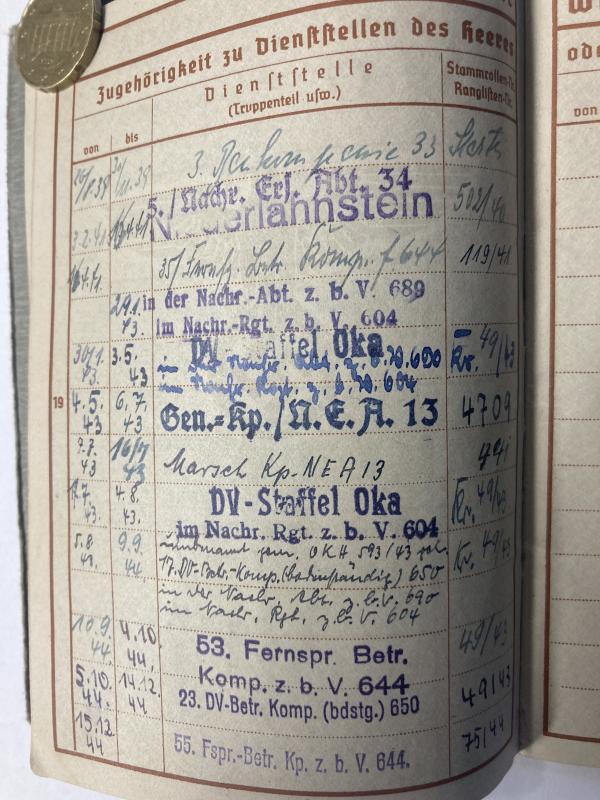 Zugehörigkeit zu Dienststellen des Heeres
von
bis
Dienststelle
(Truppenteil usw.)
Stammrollen-Nr.
Ranglisten-Nr.
3. 33
5./Nachr. Ers. Abt. 34
Niederlahnstein
3.2.41
502/40
Komp. f. 644
119/41
29.1.
43.
in der Nachr.-Abt. z. b. V. 689
im Nachr.-Rgt. z. b. V. 604
30/1.
43.
3.5.
43
DV-Staffel Oka
in der Nachr. Abt. z. b. V. 690
im Nachr. Rgt. z. b. V. 604
Kr. 49/43
19
4.5.
43
6.7.
43
Gen.=Kp./N.E.A. 13
4709
43
16/7
43
Marsch Kp. NEA 13
43.
4.8.
43.
DV-Staffel Oka
im Nachr. Rgt. z. b. V. 604
Kr. 49/43
5.8
9.9.
44
OKH 593/43
17. DV-Betr.-Komp. (bodenständig) 650
in der Nachr. Abt. z. b. V. 690
im Nachr. Rgt. z. b. V. 604
Kr. 49/43
10.9.
44
4.10.
44.
53. Fernspr. Betr.
Komp. z. b. V. 644
49/43
5.10.
44.
14.12.
44
23. DV-Betr. Komp. (bdstg.) 650
49/43
15.12
44
55. Fspr.-Betr. Kp. z. b. V. 644.
75/44
von